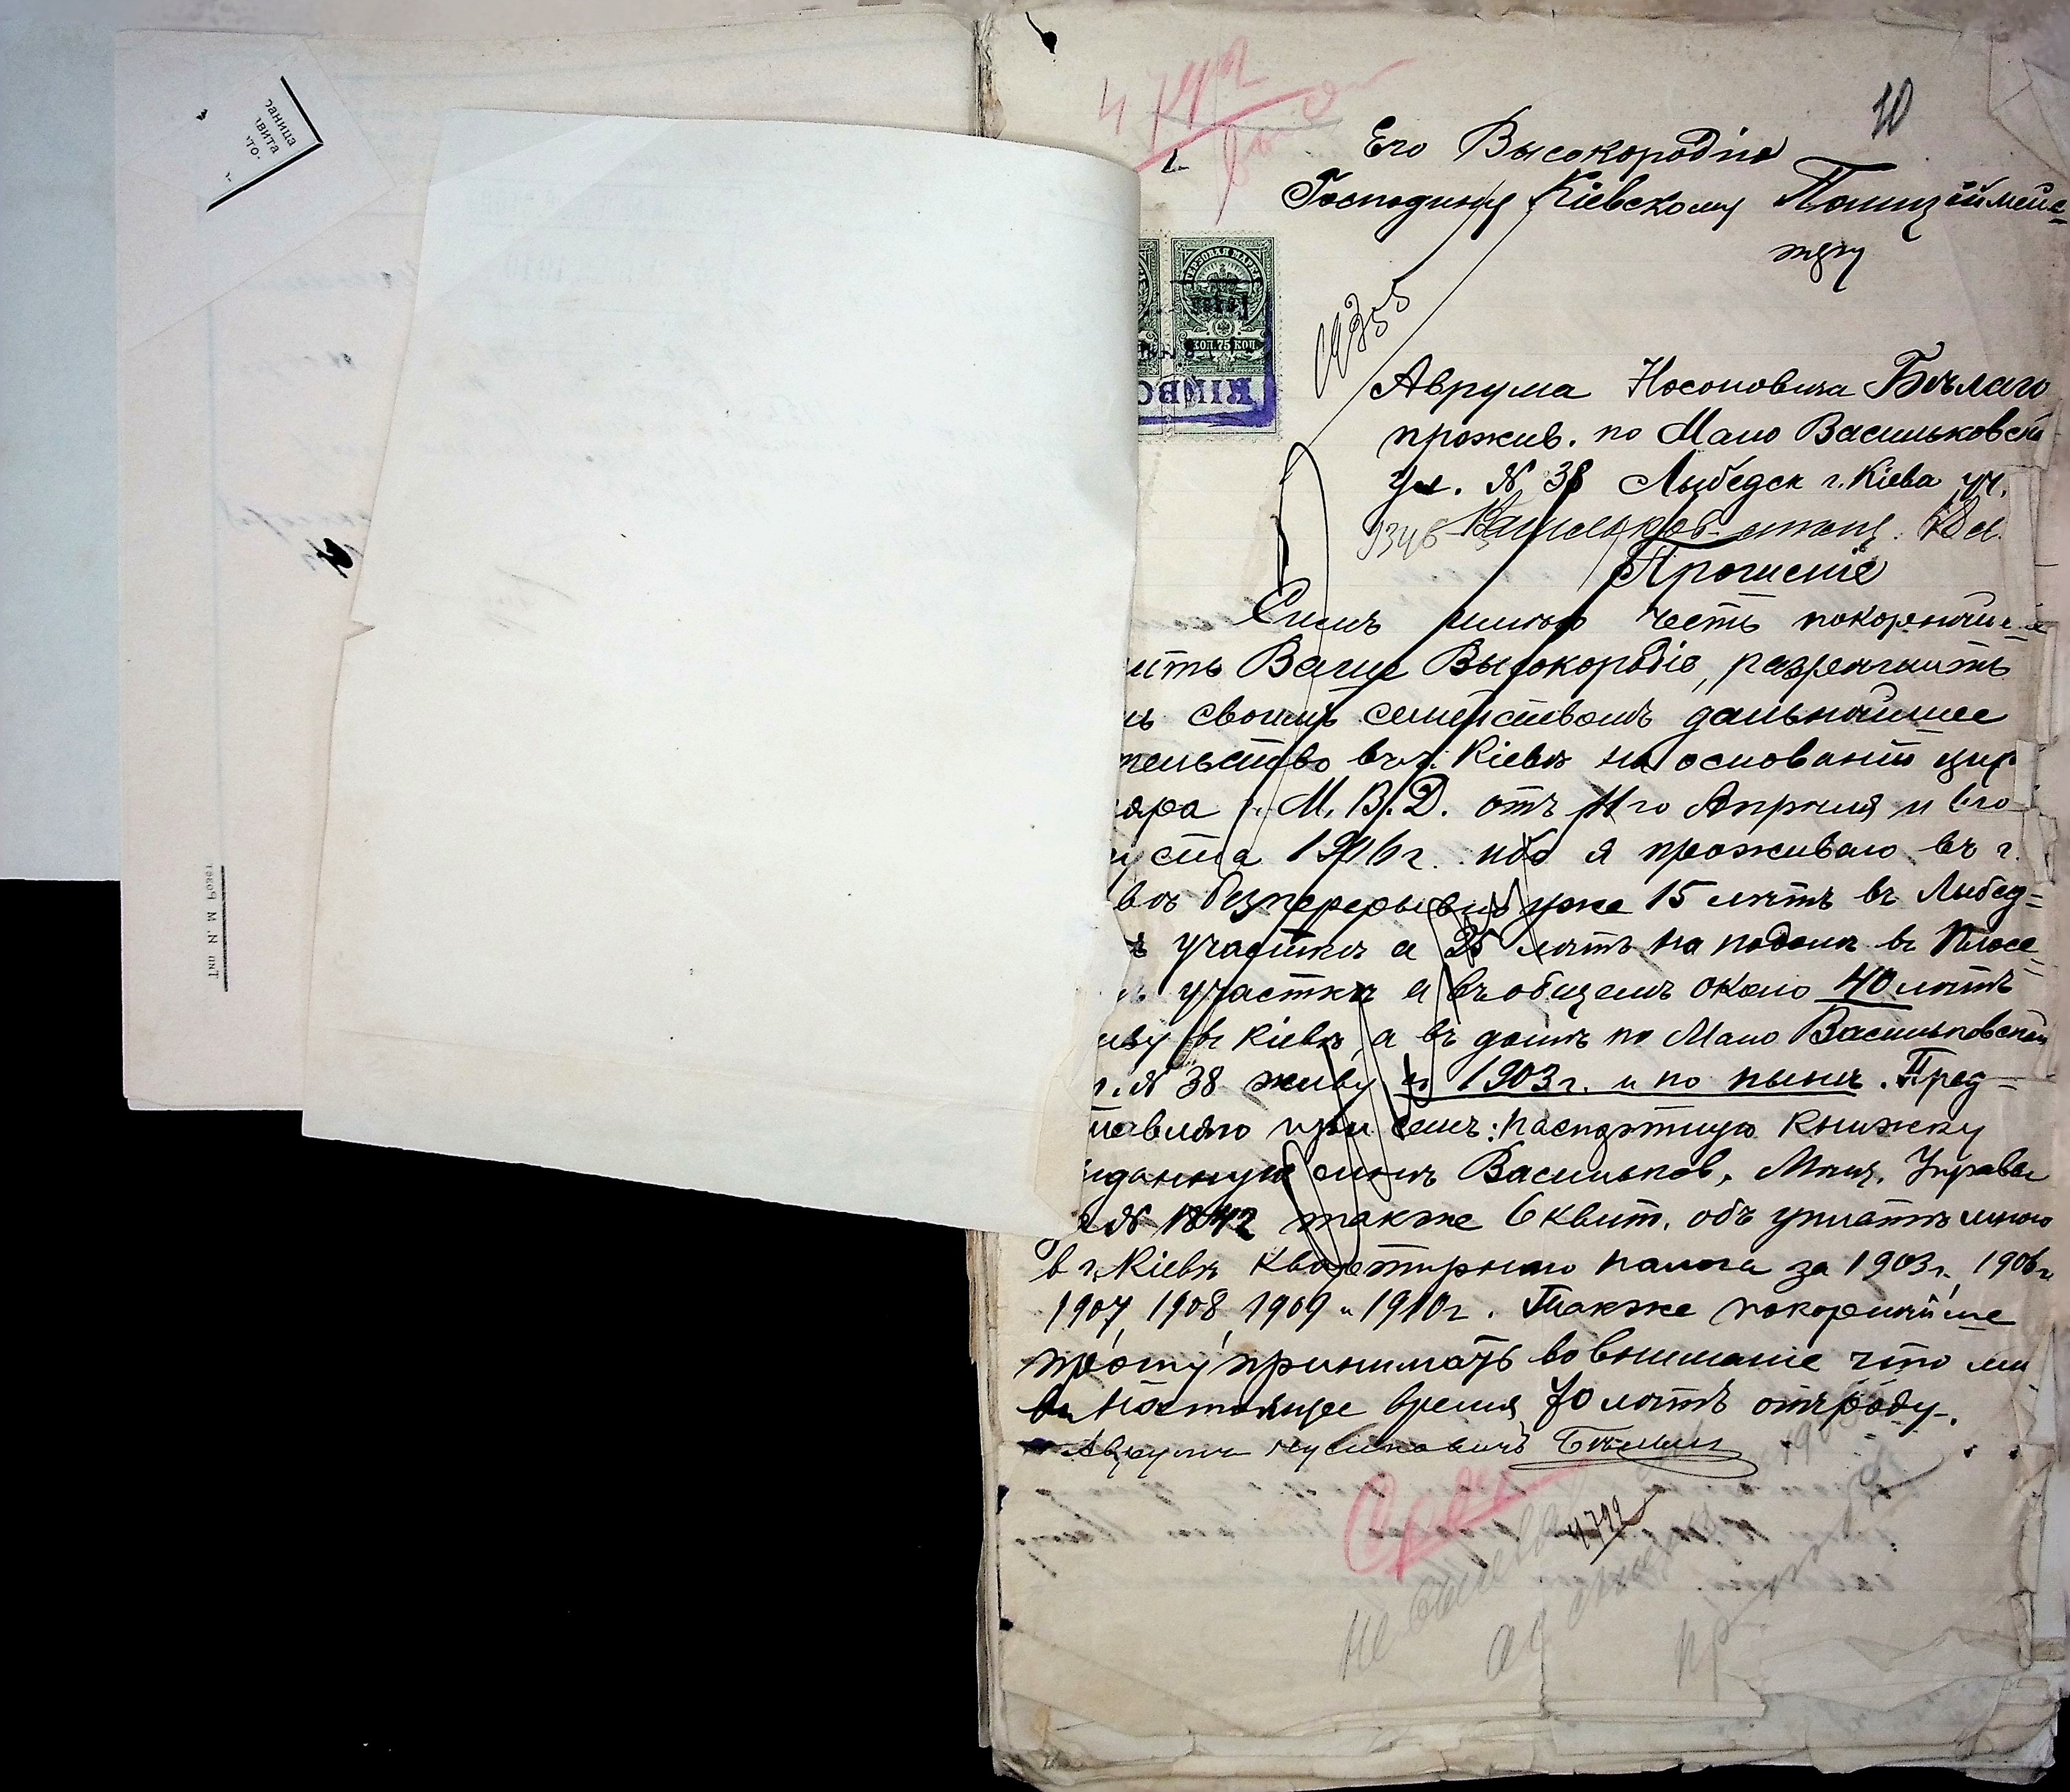 10
Его Высокородію
Господину Кіевскому Полицеймей-
стеру
КОП. 75 КОП.
Аврума Носоновича Бѣлаго
прожив. по Мало Васильковск
ул. № 38 Лыбедск г. Кіева уч.
Прошеніе
Симъ имѣю честь покорнѣйше
ить Ваше Высокородіе, разрѣшить
ъ своимъ семействомъ дальнѣйшее
тельство въ г. Кіевѣ на основаніи цир
яра г. М. В. Д. отъ 11го Апрѣля и 6го
уста 1906 г. ибо я проживаю въ г.
вѣ безперерывно уже 15 лѣтъ въ Лыбед=
ъ участкѣ а 25 лѣтъ на подолѣ въ Плосс=
ъ участкѣ а въ общемъ около 40 лѣтъ
иву въ Кіевѣ, а въ домѣ по Мало Васильковской
л. № 38 живу съ 1903 г. и по нынѣ. Пред=
тавляю при семъ: паспортную книжку
ыданную мнѣ Васильков. Мѣщ. Управы
№ 1842 также 6 квит. объ уплатѣ мною
в г. Кіевѣ квартирнаго налога за 1903 г., 1906 г.
1907, 1908, 1909 и 1910 г. Также покорнѣйше
прошу принимать во вниманіе что мн
въ настоящее время 70 лѣтъ отъ роду.
Аврумъ Нусиновичъ Бѣлый
Срочн
4792
не